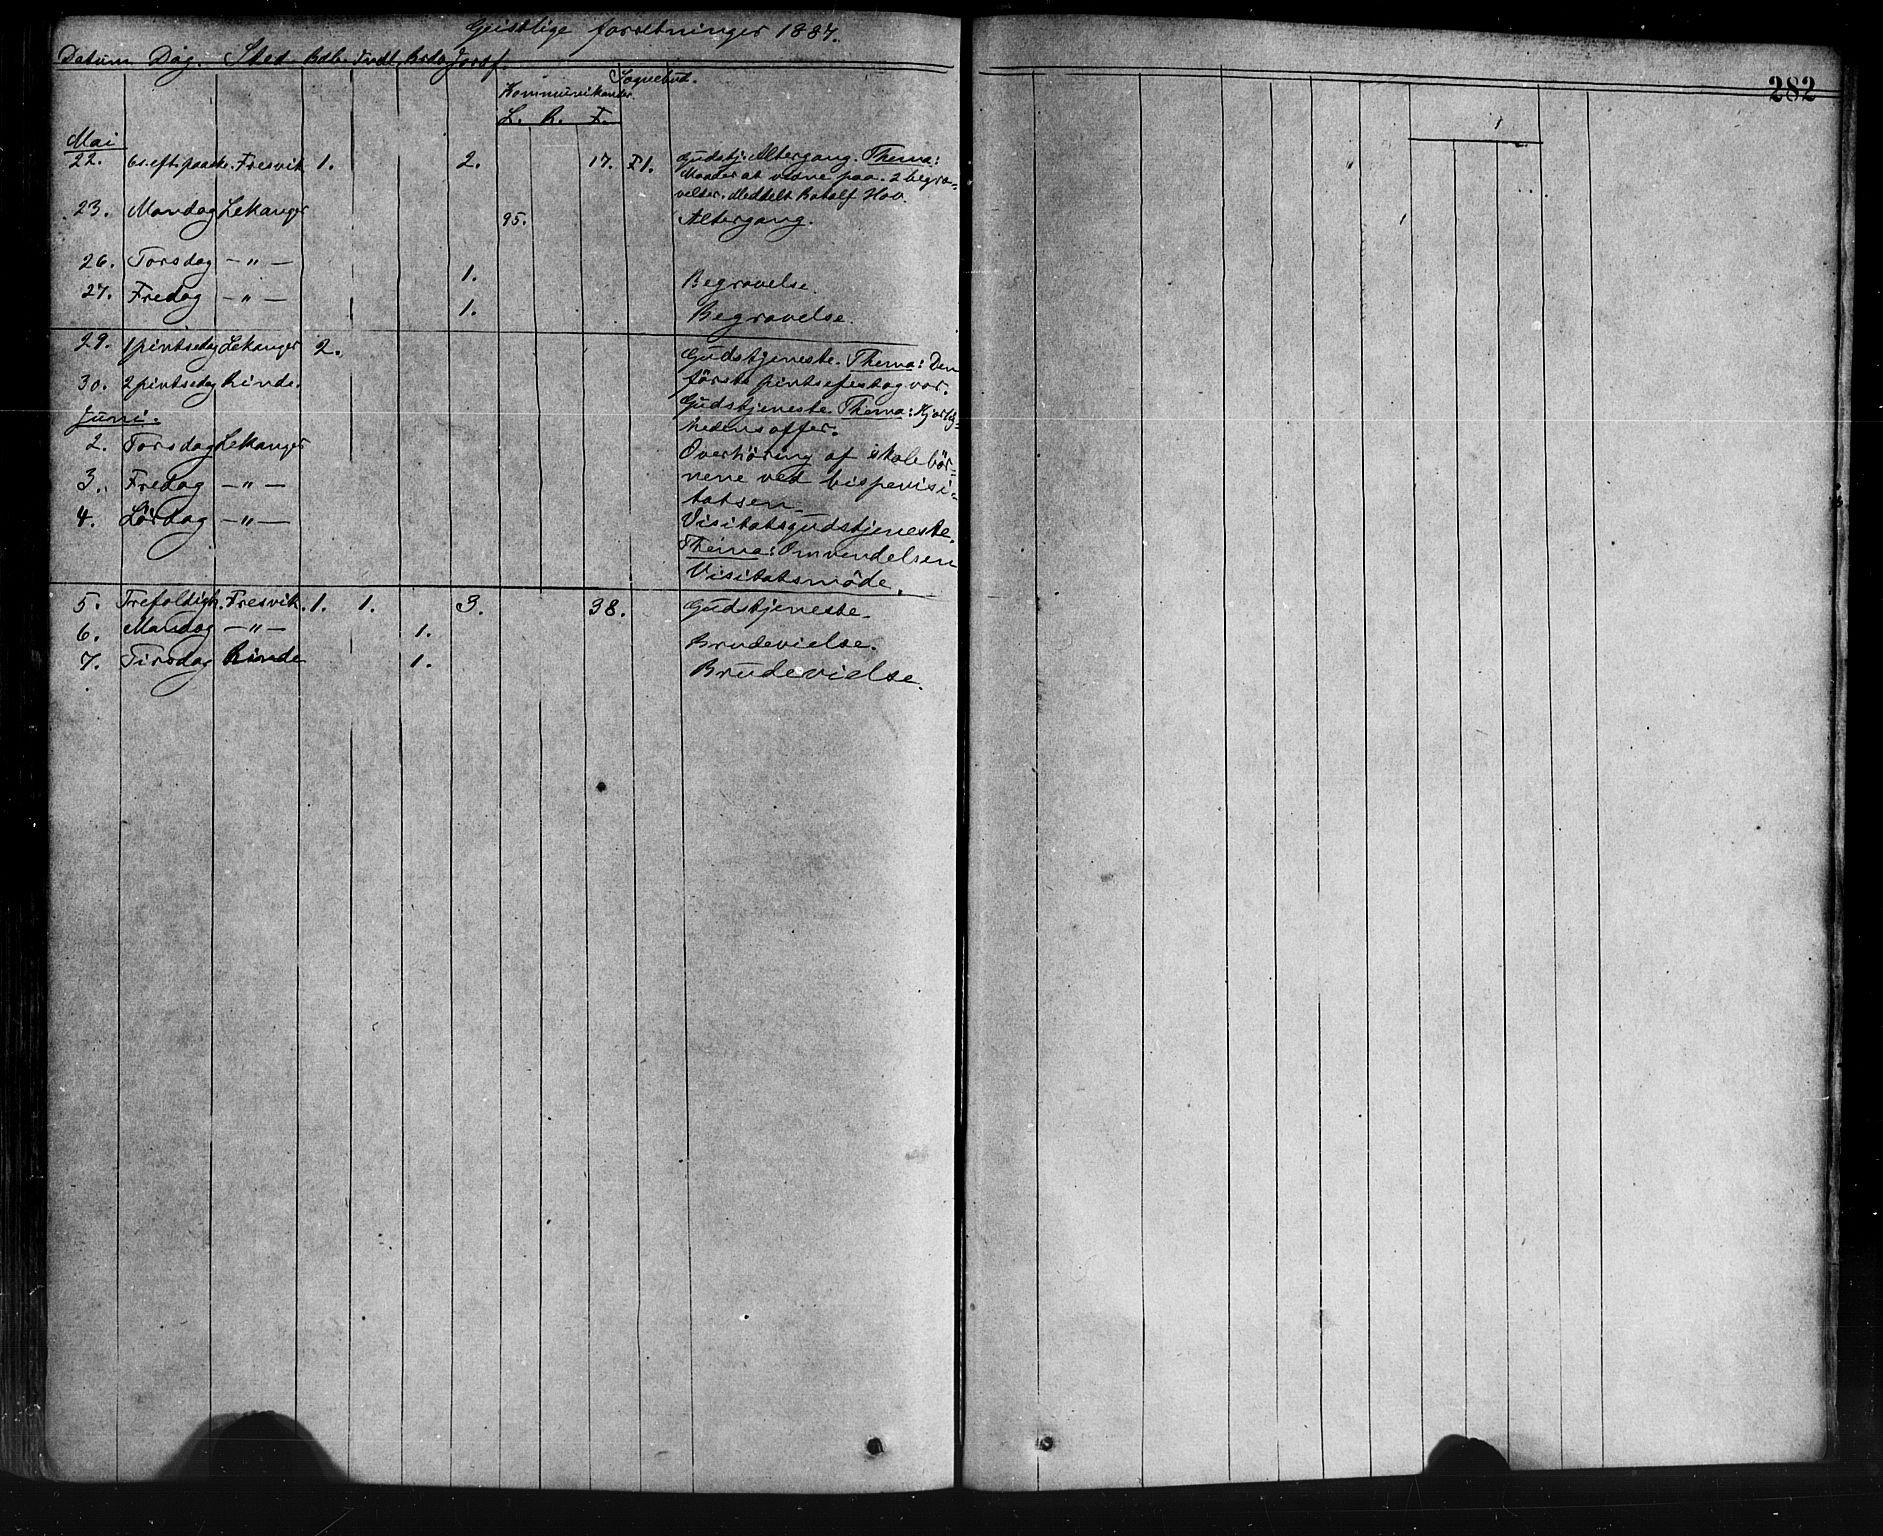 Geistlige forretninger 1887.
Datum Dag. Sted Bdb. Indl. Brdv. Jordf.
Sognebud.
Kommunikanter.
L. R. F.
282
Mai
22. 6 s. eft. paaske. Fresvik 1. 2. 17. F1. Gudstj. Altergang. Thema:
Maader at vidne paa. 2 begra-
velser. Meddelt Botolf Hov.
23. Mandag Lekanger 95. Altergang.
26. Torsdag — " — 1. Begravelse.
27. Fredag — " — 1. Begravelse.
29. 1 pintsedag Lekanger 2. Gudstjeneste. Thema: Den
første pintsefestag var.
30. 2 pintsedag Rinde. Gudstjeneste. Thema: Kjærlig-
hedens offer.
Juni.
2. Torsdag Lekanger Overhøring af skolebør-
nene ved bispevisi-
tatsen.
3. Fredag — " —
4. Lørdag — " — Visitatsgudstjeneste.
Thema: Omvendelsen
Visitatsmøde.
5. Trefoldigh. Fresvik. 1. 1. 3. 38. Gudstjeneste.
6. Mandag — " — 1. Brudevielse.
7. Tirsdag Rinde 1. Brudevielse.